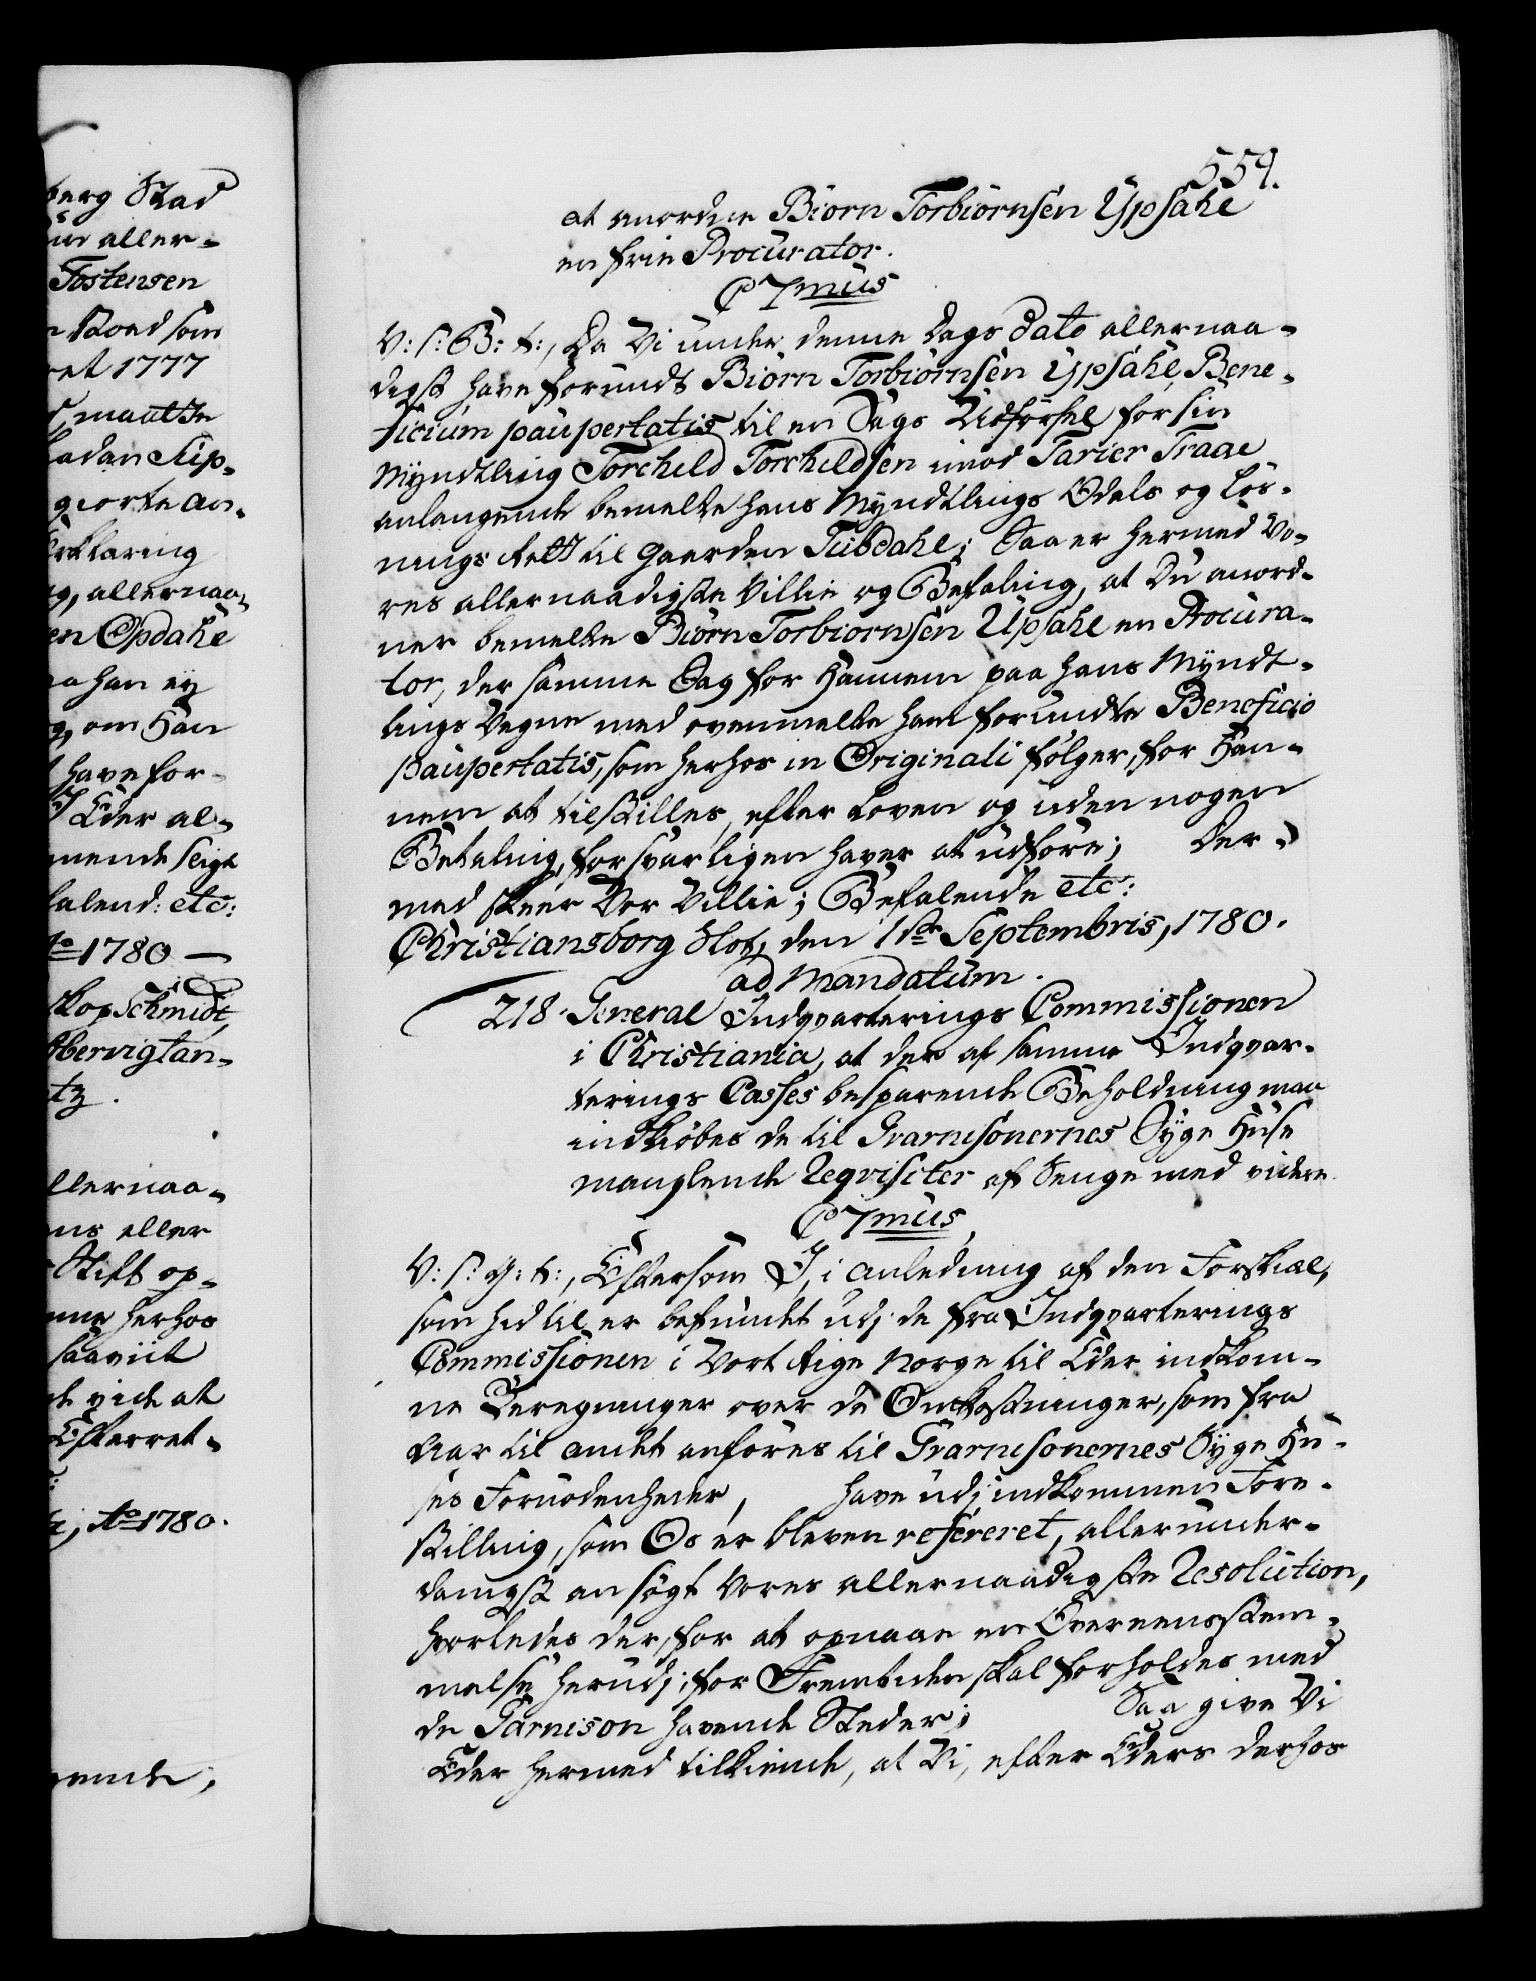 berg Stad
aller-
Tostensen
Skoed som
1777
maatte
sadan Sup-
giorte an-
Erklæring
allernaa-
en Opdahl
han ey
om Han
have for-
Eder al-
falend: etc:
1780 —
Schmidt,
Obervigtan-
tz.
allernaa-
eller
Stift op-
herhos
saaviit
vide at
Efterret-
Ao 1780.
559.
at anordne Biørn Torbiørnsen Upsahl
en frie Procurator.
C 7mus
V: S: B: t:, Da Vi under denne Dags Dato allernaa-
digst have forundt Biørn Torbiørnsen Upsahl, Bene-
ficium paupertatis til en Sags Udførsel for sin
Myndtling Torchild Torchildsen imod Tarier Traae
anlangende bemelte hans Myndtlings Odels og Løs-
nings Rett til Gaarden Tubdahl; Saa er hermed Vo-
res allernaadigste Villie og Befaling, at Du anord-
ner bemelte Biørn Torbiørnsen Upsahl en Procura-
tor, der samme Sag for Hannem paa hans Myndt-
lings Vegne med ovenmelte ham forundte Beneficio
paupertatis, som herhos in Originali følger, for Han-
nem at tilstilles, efter Loven og uden nogen
Betaling, forsvarligen haver at udføre; Der-
med skeer Vor Villie; Befalende etc:
Christiansborg Slot, den 1ste Septembris, 1780.
ad Mandatum.
218. General Indqvarterings Commissionen
i Christiania, at der af samme Indqvar-
terings Casses besparende Beholdning maa
indkiøbes de til Gvarnisonernes Syge Huse
manglende Reqvisiter af Senge med videre.
C 7mus
V: S: G: t:, Eftersom I, i Anledning af den Forskiæl,
som hidtil er befundet udj de fra Indqvarterings
Commissionen i Vort Rige Norge til Eder indkom-
ne Beregninger over de Omkostninger, som fra
Aar til andet anføres til Gvarnisonernes Syge Hu-
ses Fornødenheder, have udj indkommen Fore-
stilling, som Os er bleven refereret, allerunder-
danigst ansøgt Vores allernaadigste Resolution,
hvorledes der, for at opnaae en Overeensstem-
melse herudj, for Fremtiden skal forholdes med
de Garnison havende Stæder; Saa give Vi
Eder hermed tilkiende, at Vi, efter Eders derhos